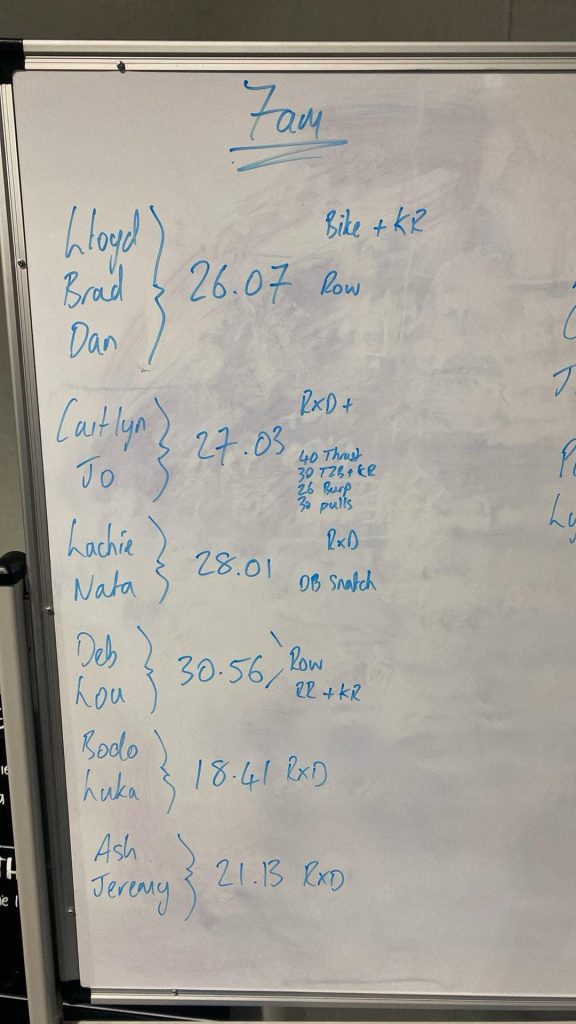 7am
Lloyd
Bike + KR
Brad
26.07 Row
Dan
RxD +
Caitlyn
27.03
Jo
40 Thrust
30 T2B + KR
26 Burp
30 pulls
Lachie
RxD
28.01
Nata
DB Snatch
Deb
30.56 Row
Lou
RR + KR
Bodo
18.41 RxD
Luka
Ash
21.13 RxD
Jeremy